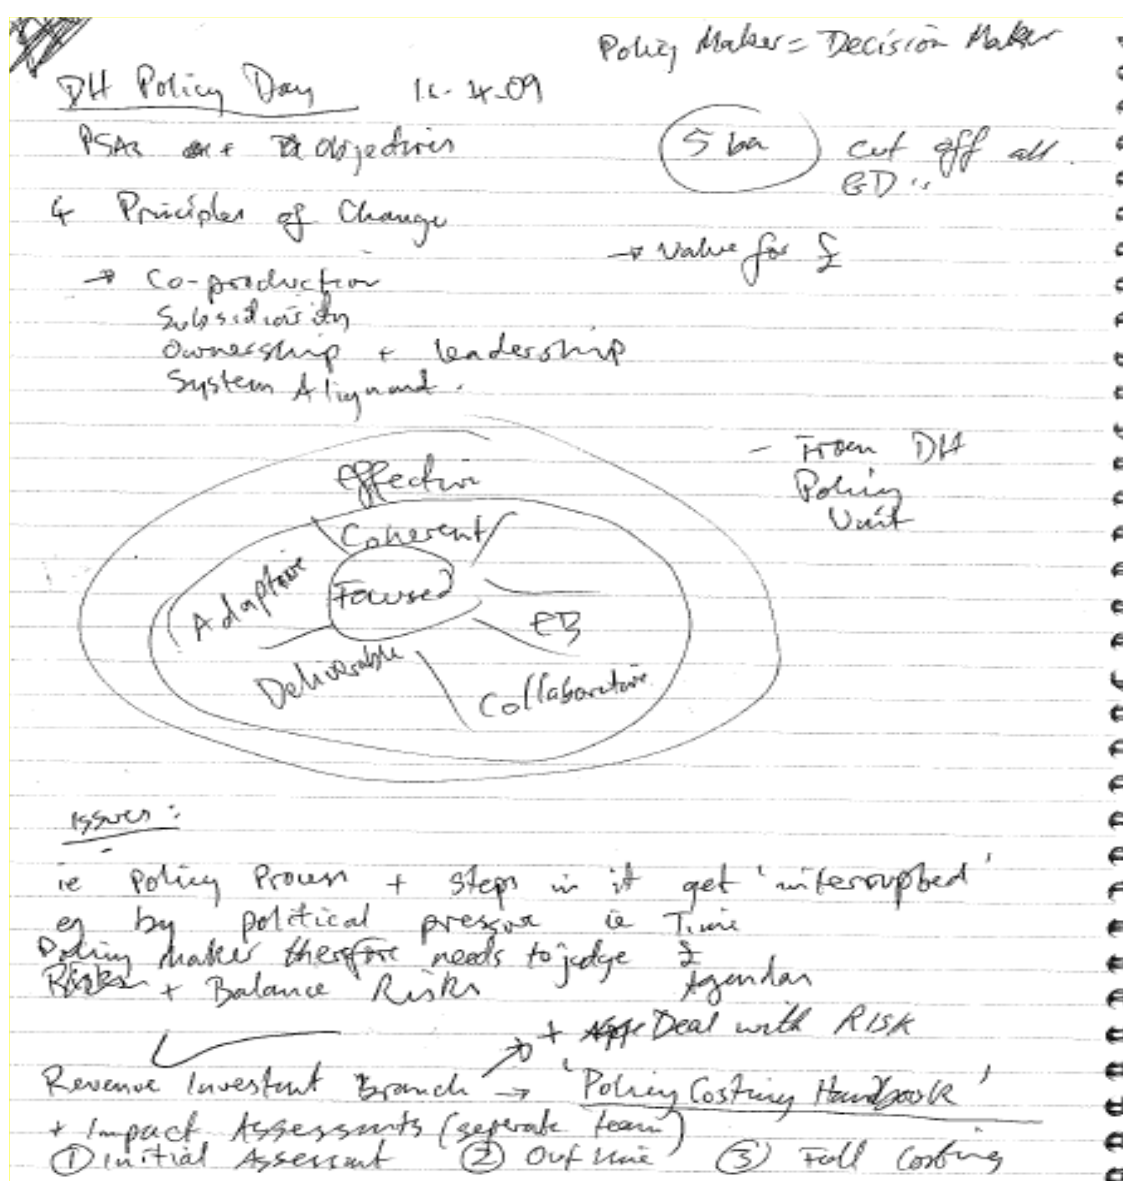 Policy Maker = Decision Maker
DH Policy Day
PSAs + objectives
5 bn cut off all
4 Principles of Change
→ Value for £
→ Co-production
Subsidiarity
Ownership + leadership
System Alignment.
- From DH
Policy
Unit
Effective
Coherent
Adaptive
Focused
EB
Deliverable
Collaborative
Issues:
ie Policy Process + steps in it get 'interrupted'
eg by political pressure ie Time
Policy Maker therefore needs to judge £
Risks + Balance Risks Agendas
+ Deal with RISK
Revenue Investment Branch → 'Policy Costing Handbook'
+ Impact Assessments (seperate team)
① Initial Assessment ② Outline ③ Full Costing